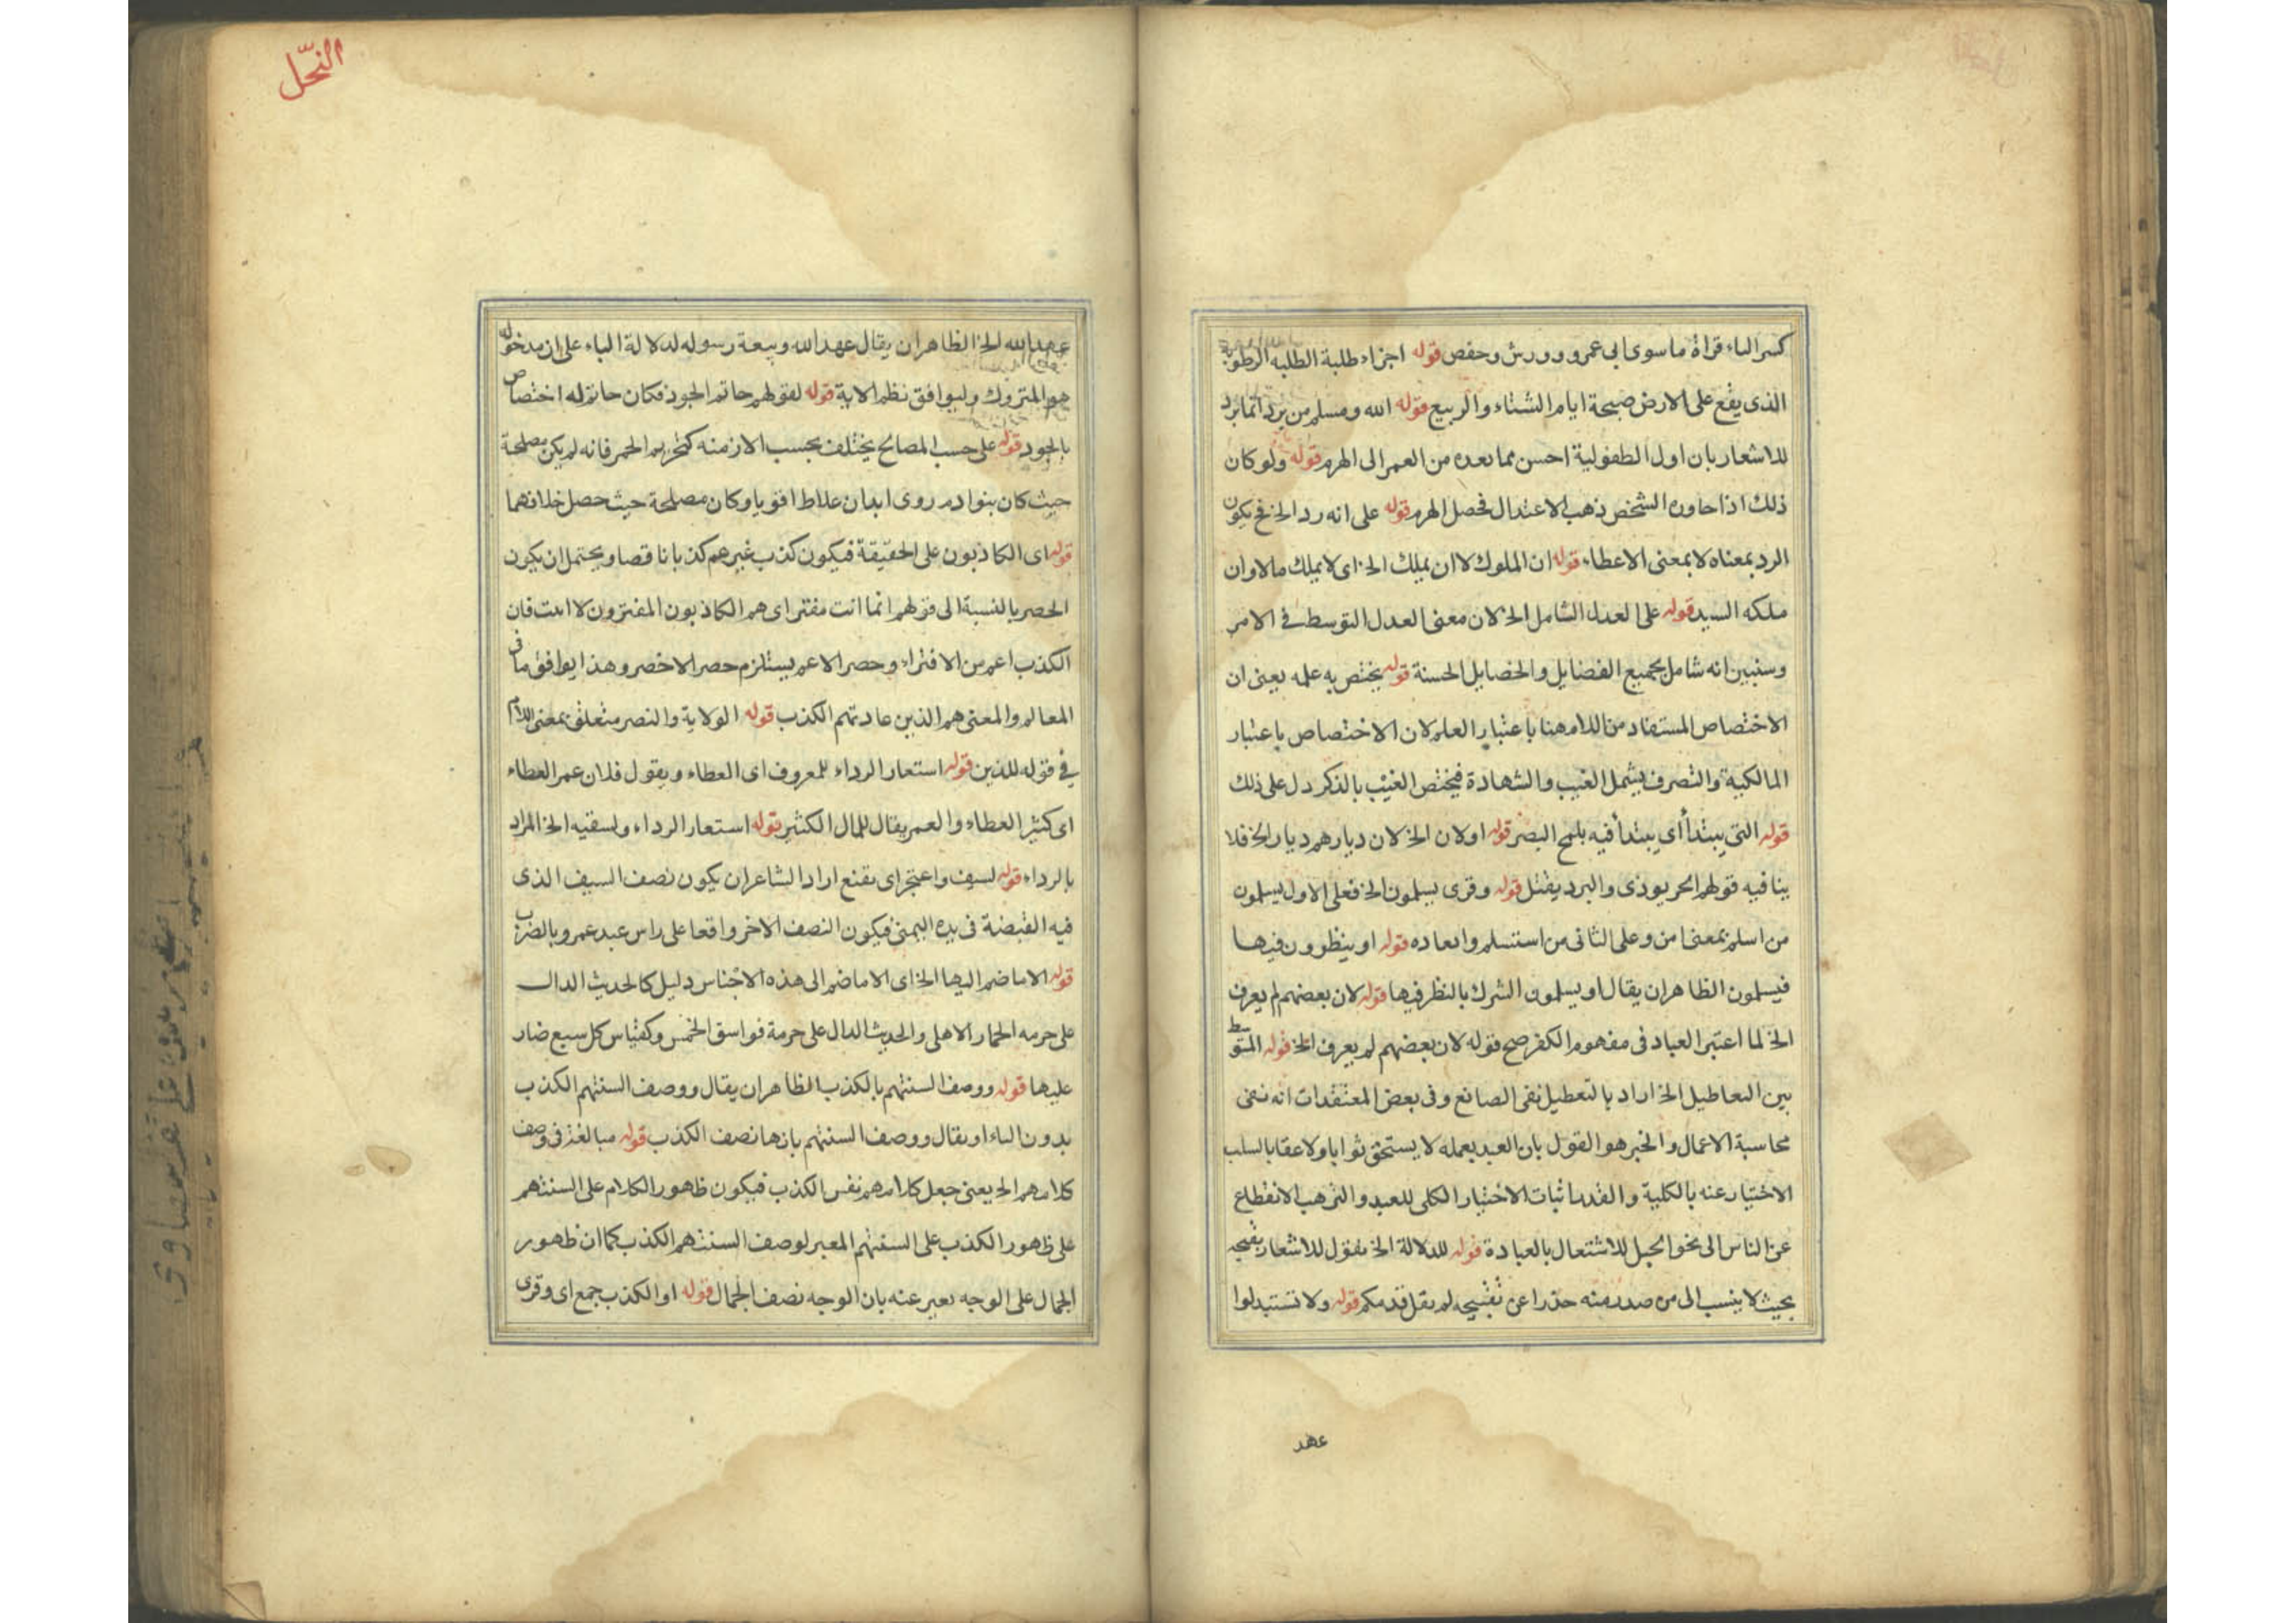 كسر الباء قراة ما سوى ابى عمرو وورش وحفص قوله اجزاء طلبة الطلبه الرطوبة
الذى يقع على الارض صبيحة ايام الشتاء والربيع قوله الله ومسلم من يرد انما يرد
للاشعار بان اول الطفولية احسن مما بعده من العمر الى الهرم قوله ولو كان
ذلك اذا جاوزه الشخص ذهب الاعتدال فحصل الهرم قوله على انه رد الخ فح يكون
الرد بمعناه لا بمعنى الاعطاء قوله ان الملوك لا ان يملك الخ اى لا يملك مالا وان
ملكه السيد قوله على العدل الشامل الخ لان معنى العدل التوسط فى الامر
وسنبين انه شامل بجميع الفضايل والخصايل الحسنة قوله يختص به علمه يعنى ان
الاختصاص المستفاد من اللام هنا باعتبار العلم لان الاختصاص باعتبار
المالكية والتصرف يشمل الغيب والشهادة فيختص الغيب بالذكر دل على ذلك
قوله التى يبتدأ أى يبتدأ فيه بلمح البصر قوله اولان الخ لان ديارهم ديار الخ فلا
ينافيه قولهم الحر يوذى والبرد يقتل قوله وقرى يسلمون الخ فعلى الاول يسلمون
من اسلم بمعنى امن وعلى الثانى من استسلم وابعاده قوله او ينظرون فيها
فيسلمون الظاهر ان يقال او يسلمون الشرك بالنظر فيها قوله لان بعضهم لم يعرف
الخ لما اعتبر العباد فى مفهوم الكفر صح قوله لان بعضهم لم يعرف الخ قوله المتوسط
بين التعاطيل الخ اراد بالتعطيل نفى الصانع وفى بعض المعتقدات انه نفى
محاسبة الاعمال والخبر هو القول بان العبد بعمله لا يستحق ثوابا ولا عقابا لسلب
الاختيار عنه بالكلية والقدر اثبات الاختيار الكلى للعبد والترهب الانقطاع
عن الناس الى نحو الجبل للاشتعال بالعبادة قوله للدلالة الخ نقول للاشعار بقبحه
بحيث لا ينسب الى من صدر منه حذرا عن تقبيحه لم يقل قدمكم قوله ولا تستبدلوا
عهد
النّحل
عهد الله الخ الظاهر ان يقال عهد الله وبيعة رسوله لدلالة الباء على ان مدخوله
هو المتروك وليوافق نظم الاية قوله لقولهم حاتم الجود فكان حاتم له اختصاص
بالجود قوله على حسب المصالح يختلف بحسب الازمنه كتحريم الخمر فانه لم يكن مصلحة
حيث كان بنوا دم روى ابدان غلاظ اقويا وكان مصلحة حيث حصل خلافهما
قوله اى الكاذبون على الحقيقة فيكون كذب غيرهم كذبا ناقصا ويحتمل ان يكون
الحصر بالنسبة الى قولهم انما انت مفتر اى هم الكاذبون المفترون لا انت فان
الكذب اعم من الافتراء وحصر الاعم يستلزم حصر الاخص وهذا يوافق ما فى
المعالم والمعنى هم الذين عادتهم الكذب قوله الولاية والنصر متعلق بمعنى اللام
فى قوله للذين قوله استعار الرداء للمعروف اى العطاء ويقول فلان غمر العطاء
اى كثير العطاء والغمر يقال للمال الكثير قوله استعار الرداء ولسقيه الخ المراد
بالرداء قوله لسيف واعتجر اى تقنع اراد الشاعر ان يكون نصف السيف الذى
فيه القبضة فى يده اليمنى فيكون النصف الاخر واقعا على راس عبد عمرو بالضرب
قوله الا ما ضم اليها الخ اى الا ما ضم الى هذه الاجناس دليل كالحديث الدال
على حرمه الحمار الاهلى والحديث الدال على حرمة فواسق الخمس وكقياس كل سبع ضار
عليها قوله ووصف السنتهم بالكذب الظاهر ان يقال ووصف السنتهم الكذب
بدون الباء او يقال ووصف السنتهم بانها نصف الكذب قوله مبالغة فى وصف
كلامهم الخ يعنى جعل كلامهم نفس الكذب فيكون ظهور الكلام على السنتهم
على ظهور الكذب على السنتهم المعبر لوصف السنتهم الكذب كما ان ظهور
الجمال على الوجه يعبر عنه بان الوجه نصف الجمال قوله او الكذب جمع اى وقرى